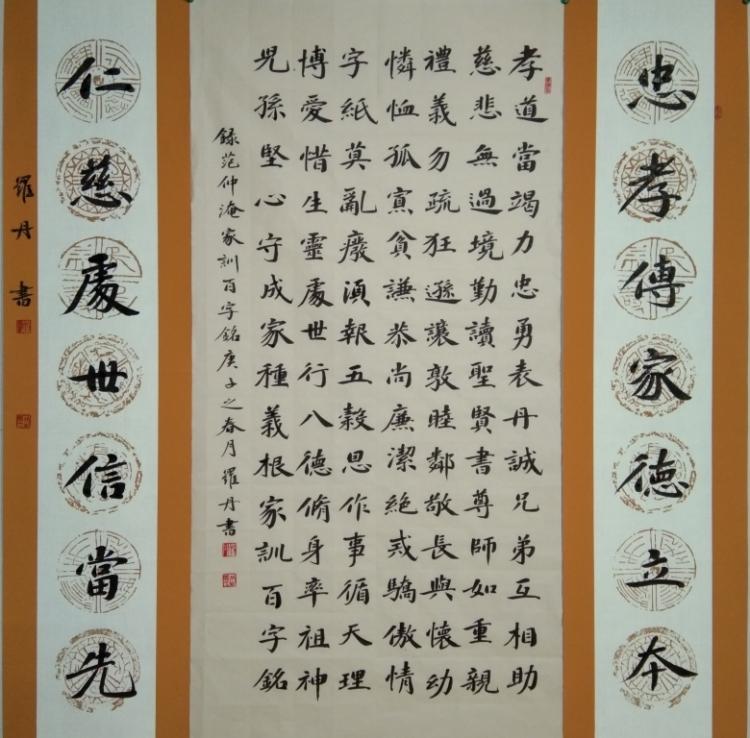 忠孝傳家德立本
孝道當竭力忠勇表丹誠兄弟互相助
慈悲無過境勤讀聖賢書尊師如重親
禮義勿疏狂遜讓敦睦鄰敬長與懷幼
憐恤孤寡貧謙恭尚廉潔絕戒驕傲情
字紙莫亂廢須報五穀恩作事循天理
博愛惜生靈處世行八德脩身率祖神
兒孫堅心守成家種義根家訓百字銘
錄范仲淹家訓百字銘庚子之春月羅丹書
仁慈處世信當先
羅丹書